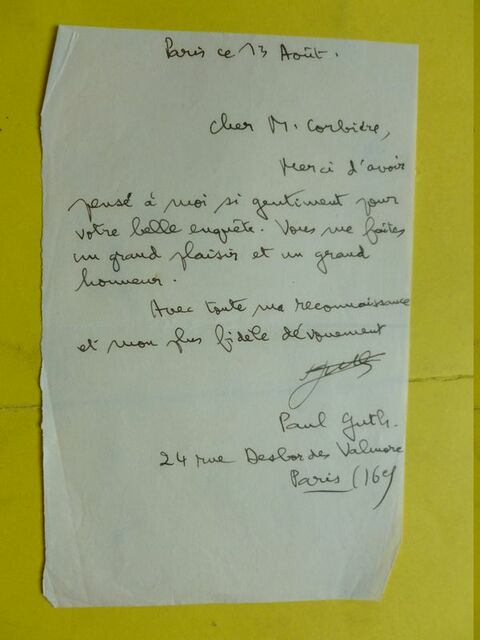 Paris ce 13 Août.
Cher M. Corbière,
Merci d'avoir
pensé à moi si gentiment pour
votre belle enquête. Vous me faites
un grand plaisir et un grand
honneur.
Avec toute ma reconnaissance
et mon plus fidèle dévouement
Paul Guth.
24 rue Desbordes Valmore
Paris (16e)